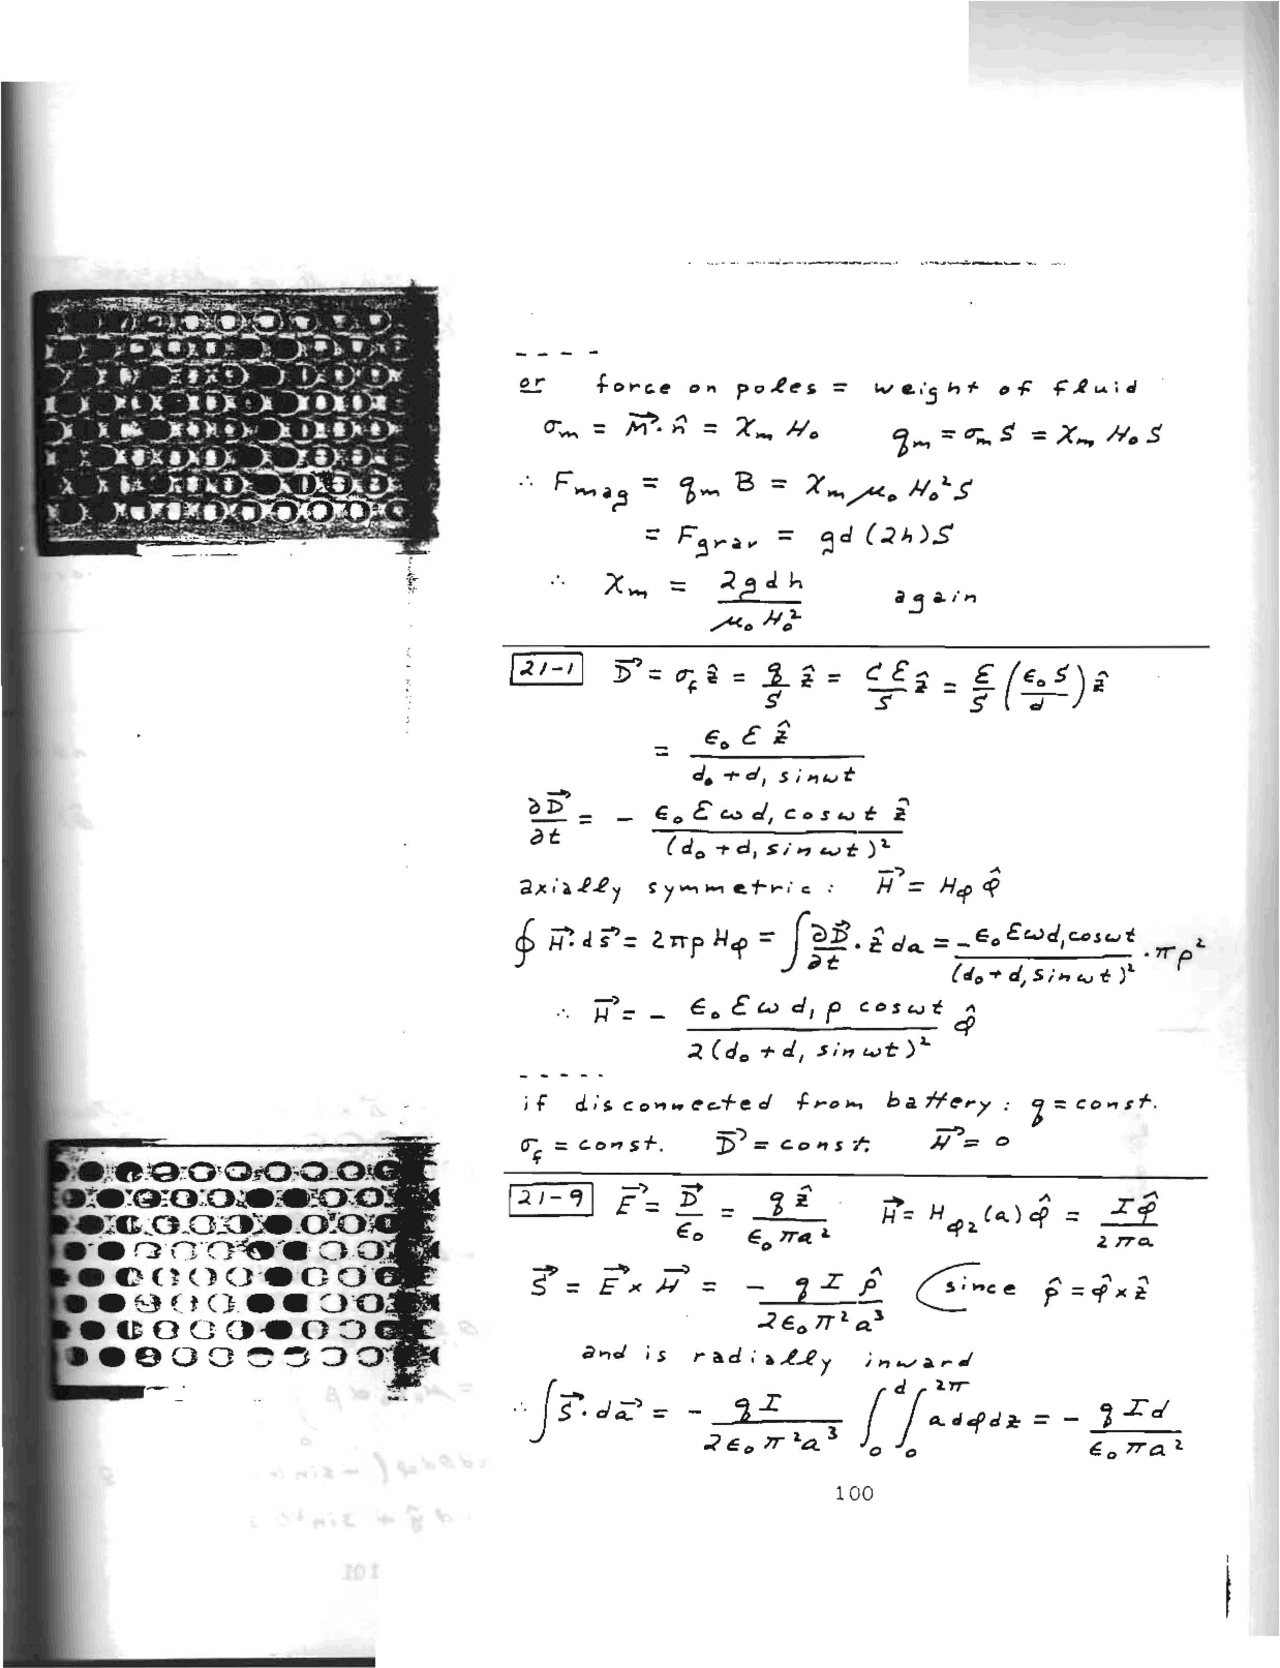 - - - -
or force on poles = weight of fluid
σ_m = M⃗·n̂ = χ_m H₀    q_m = σ_m S = χ_m H₀ S
∴ F_mag = q_m B = χ_m μ₀ H₀² S
= F_grav = gd(2h)S
∴ χ_m = 2gdh / μ₀H₀²    again
21-1  D⃗ = σ_f ẑ = q/S ẑ = Cℰ/S ẑ = ℰ/S (ε₀S/d) ẑ
= ε₀ ℰ ẑ / (d₀ + d₁ sin ωt)
∂D⃗/∂t = - ε₀ ℰ ω d₁ cos ωt ẑ / (d₀ + d₁ sin ωt)²
axially symmetric : H⃗ = H_φ φ̂
∮ H⃗·ds⃗ = 2πρ H_φ = ∫ ∂D⃗/∂t · ẑ da = - ε₀ ℰ ω d₁ cos ωt / (d₀ + d₁ sin ωt)² · πρ²
∴ H⃗ = - ε₀ ℰ ω d₁ ρ cos ωt / 2(d₀ + d₁ sin ωt)² φ̂
- - - - -
if disconnected from battery : q = const.
σ_f = const.  D⃗ = const.  H⃗ = 0
21-9  E⃗ = D⃗/ε₀ = q ẑ / ε₀πa²    H⃗ = H_φ2(a) φ̂ = I φ̂ / 2πa
S⃗ = E⃗ × H⃗ = - q I ρ̂ / 2ε₀π²a³  (since ρ̂ = φ̂ × ẑ
and is radially inward
∴ ∫ S⃗·da⃗ = - qI / 2ε₀π²a³ ∫₀^d ∫₀^2π a dφ dz = - qId / ε₀πa²
100